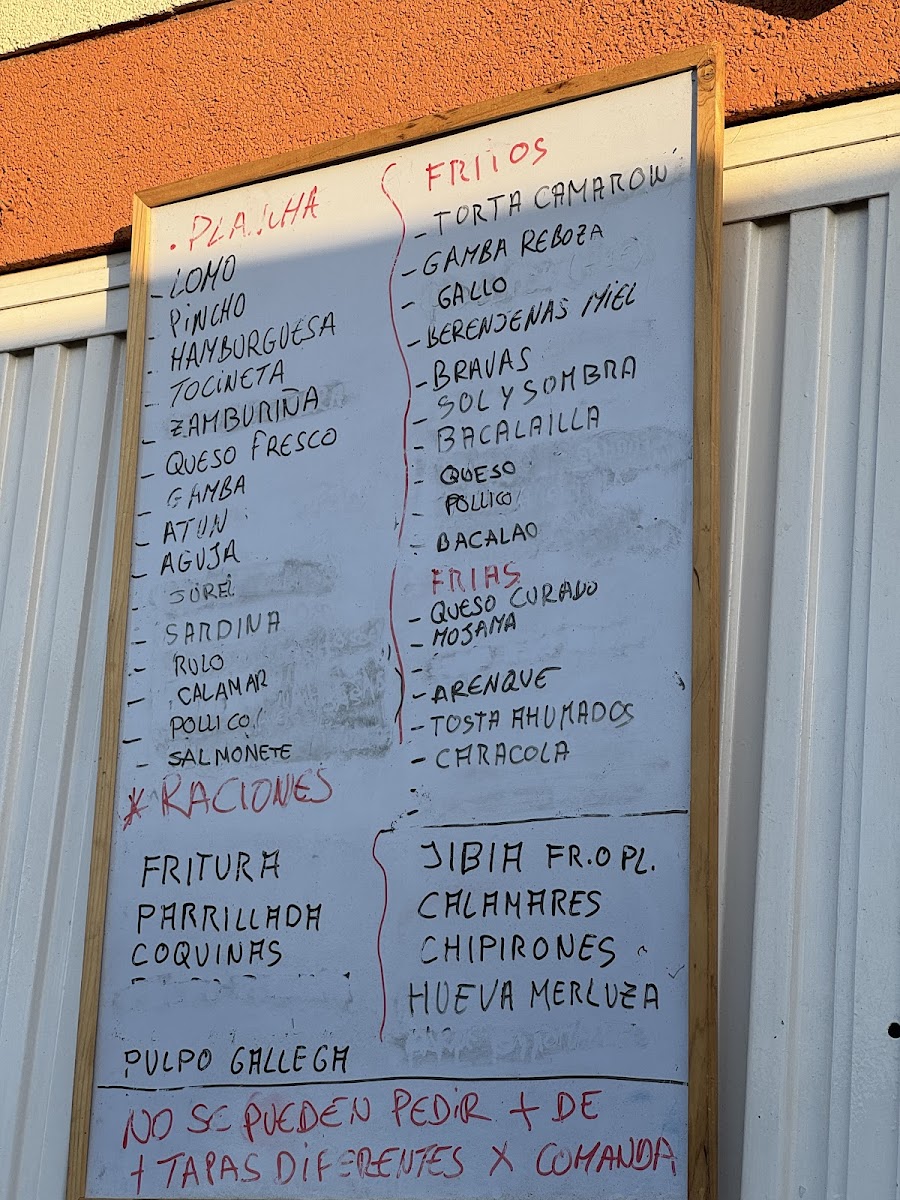 . PLANCHA
- LOMO
- PINCHO
- HAMBURGUESA
- TOCINETA
- ZAMBURIÑA
- QUESO FRESCO
- GAMBA
- ATUN
- AGUJA
- JUREL
- SARDINA
- RULO
- CALAMAR
- POLLICO
- SALMONETE
FRITOS
- TORTA CAMARON
- GAMBA REBOZA
- GALLO
- BERENJENAS MIEL
- BRAVAS
- SOL Y SOMBRA
- BACALAILLA
- QUESO
- POLLICO
- BACALAO
FRIAS
- QUESO CURADO
- MOJAMA
-
- ARENQUE
- TOSTA AHUMADOS
- CARACOLA
-
* RACIONES
FRITURA
PARRILLADA
COQUINAS
PULPO GALLEGA
JIBIA FR. O PL.
CALAMARES
CHIPIRONES
HUEVA MERLUZA
NO SE PUEDEN PEDIR + DE
+ TAPAS DIFERENTES X COMANDA